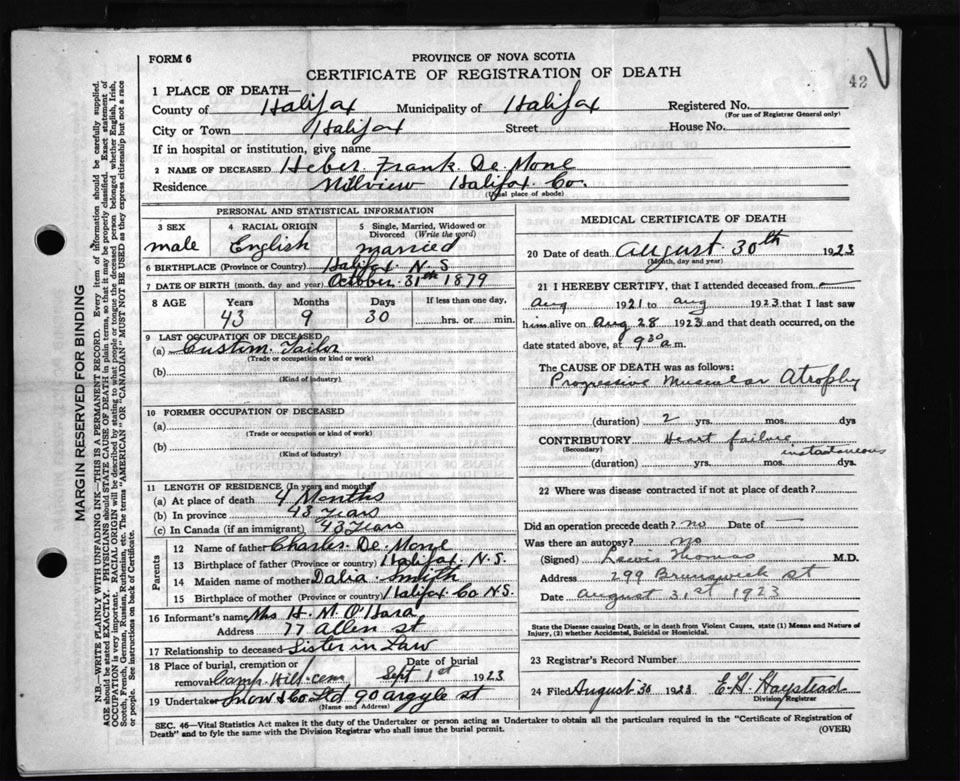 FORM 6
PROVINCE OF NOVA SCOTIA
CERTIFICATE OF REGISTRATION OF DEATH
42
1 PLACE OF DEATH—
County of Halifax Municipality of Halifax Registered No.
(For use of Registrar General only)
City or Town Halifax Street House No.
If in hospital or institution, give name
2 NAME OF DECEASED Heber Frank De Mone
Residence Millview Halifax Co.
(Usual place of abode)
PERSONAL AND STATISTICAL INFORMATION
3 SEX male
4 RACIAL ORIGIN English
5 Single, Married, Widowed or Divorced (Write the word) married
6 BIRTHPLACE (Province or Country) Halifax N.S
7 DATE OF BIRTH (month, day and year) October 31th 1879
8 AGE Years Months Days If less than one day,
43 9 30 hrs. or min.
9 LAST OCCUPATION OF DECEASED
(a) Custom Tailor
(Trade or occupation or kind of work)
(b)
(Kind of industry)
10 FORMER OCCUPATION OF DECEASED
(a)
(Trade or occupation or kind of work)
(b)
(Kind of industry)
11 LENGTH OF RESIDENCE (In years and months)
(a) At place of death 4 Months
(b) In province 43 Years
(c) In Canada (if an immigrant) 43 Years
Parents
12 Name of father Charles De Mone
13 Birthplace of father (Province or country) Halifax N.S.
14 Maiden name of mother Dalia Smith
15 Birthplace of mother (Province or country) Halifax Co N.S.
16 Informant's name Mrs H. M. O'Hara
Address 77 Allen st
17 Relationship to deceased Sister in Law
18 Place of burial, cremation or removal Camp Hill cem Date of burial Sept 1st 1923
19 Undertaker Snow & Co Ltd 90 argyle st
(Name and Address)
MEDICAL CERTIFICATE OF DEATH
20 Date of death August 30th 1923
(Month, day and year)
21 I HEREBY CERTIFY, that I attended deceased from
aug 1921 to aug 1923 that I last saw
him alive on aug 28 1923 and that death occurred, on the
date stated above, at 9 30 a.m.
The CAUSE OF DEATH was as follows:
Progressive Muscular Atrophy
(duration) 2 yrs. mos. dys
CONTRIBUTORY Heart failure
(Secondary) instantaneous
(duration) yrs. mos. dys.
22 Where was disease contracted if not at place of death?
Did an operation precede death? no Date of —
Was there an autopsy? no
(Signed) Lewis Thomas M.D.
Address 299 Brunswick st
Date August 31st 1923
State the Disease causing Death, or in Death from Violent Causes, state (1) Means and Nature of
Injury, (2) whether Accidental, Suicidal or Homicidal.
23 Registrar's Record Number
24 Filed August 30 1923 E.H. Haystead
Division Registrar
SEC. 46—Vital Statistics Act makes it the duty of the Undertaker or person acting as Undertaker to obtain all the particulars required in the "Certificate of Registration of
Death" and to fyle the same with the Division Registrar who shall issue the burial permit.
(OVER)
MARGIN RESERVED FOR BINDING
N.B.—WRITE PLAINLY WITH UNFADING INK—THIS IS A PERMANENT RECORD. Every item of information should be carefully supplied.
AGE should be stated EXACTLY. PHYSICIANS should STATE CAUSE OF DEATH in plain terms, so that it may be properly classified. Exact statement of
OCCUPATION is very important. RACIAL ORIGIN will be described by stating to what people or tongue the deceased person belonged whether English, Irish,
Scotch, French, German, Russian, Ruthenian, etc. The terms "AMERICAN" or "CANADIAN" MUST NOT BE USED as they express citizenship but not a race
or people. See instructions on back of Certificate.